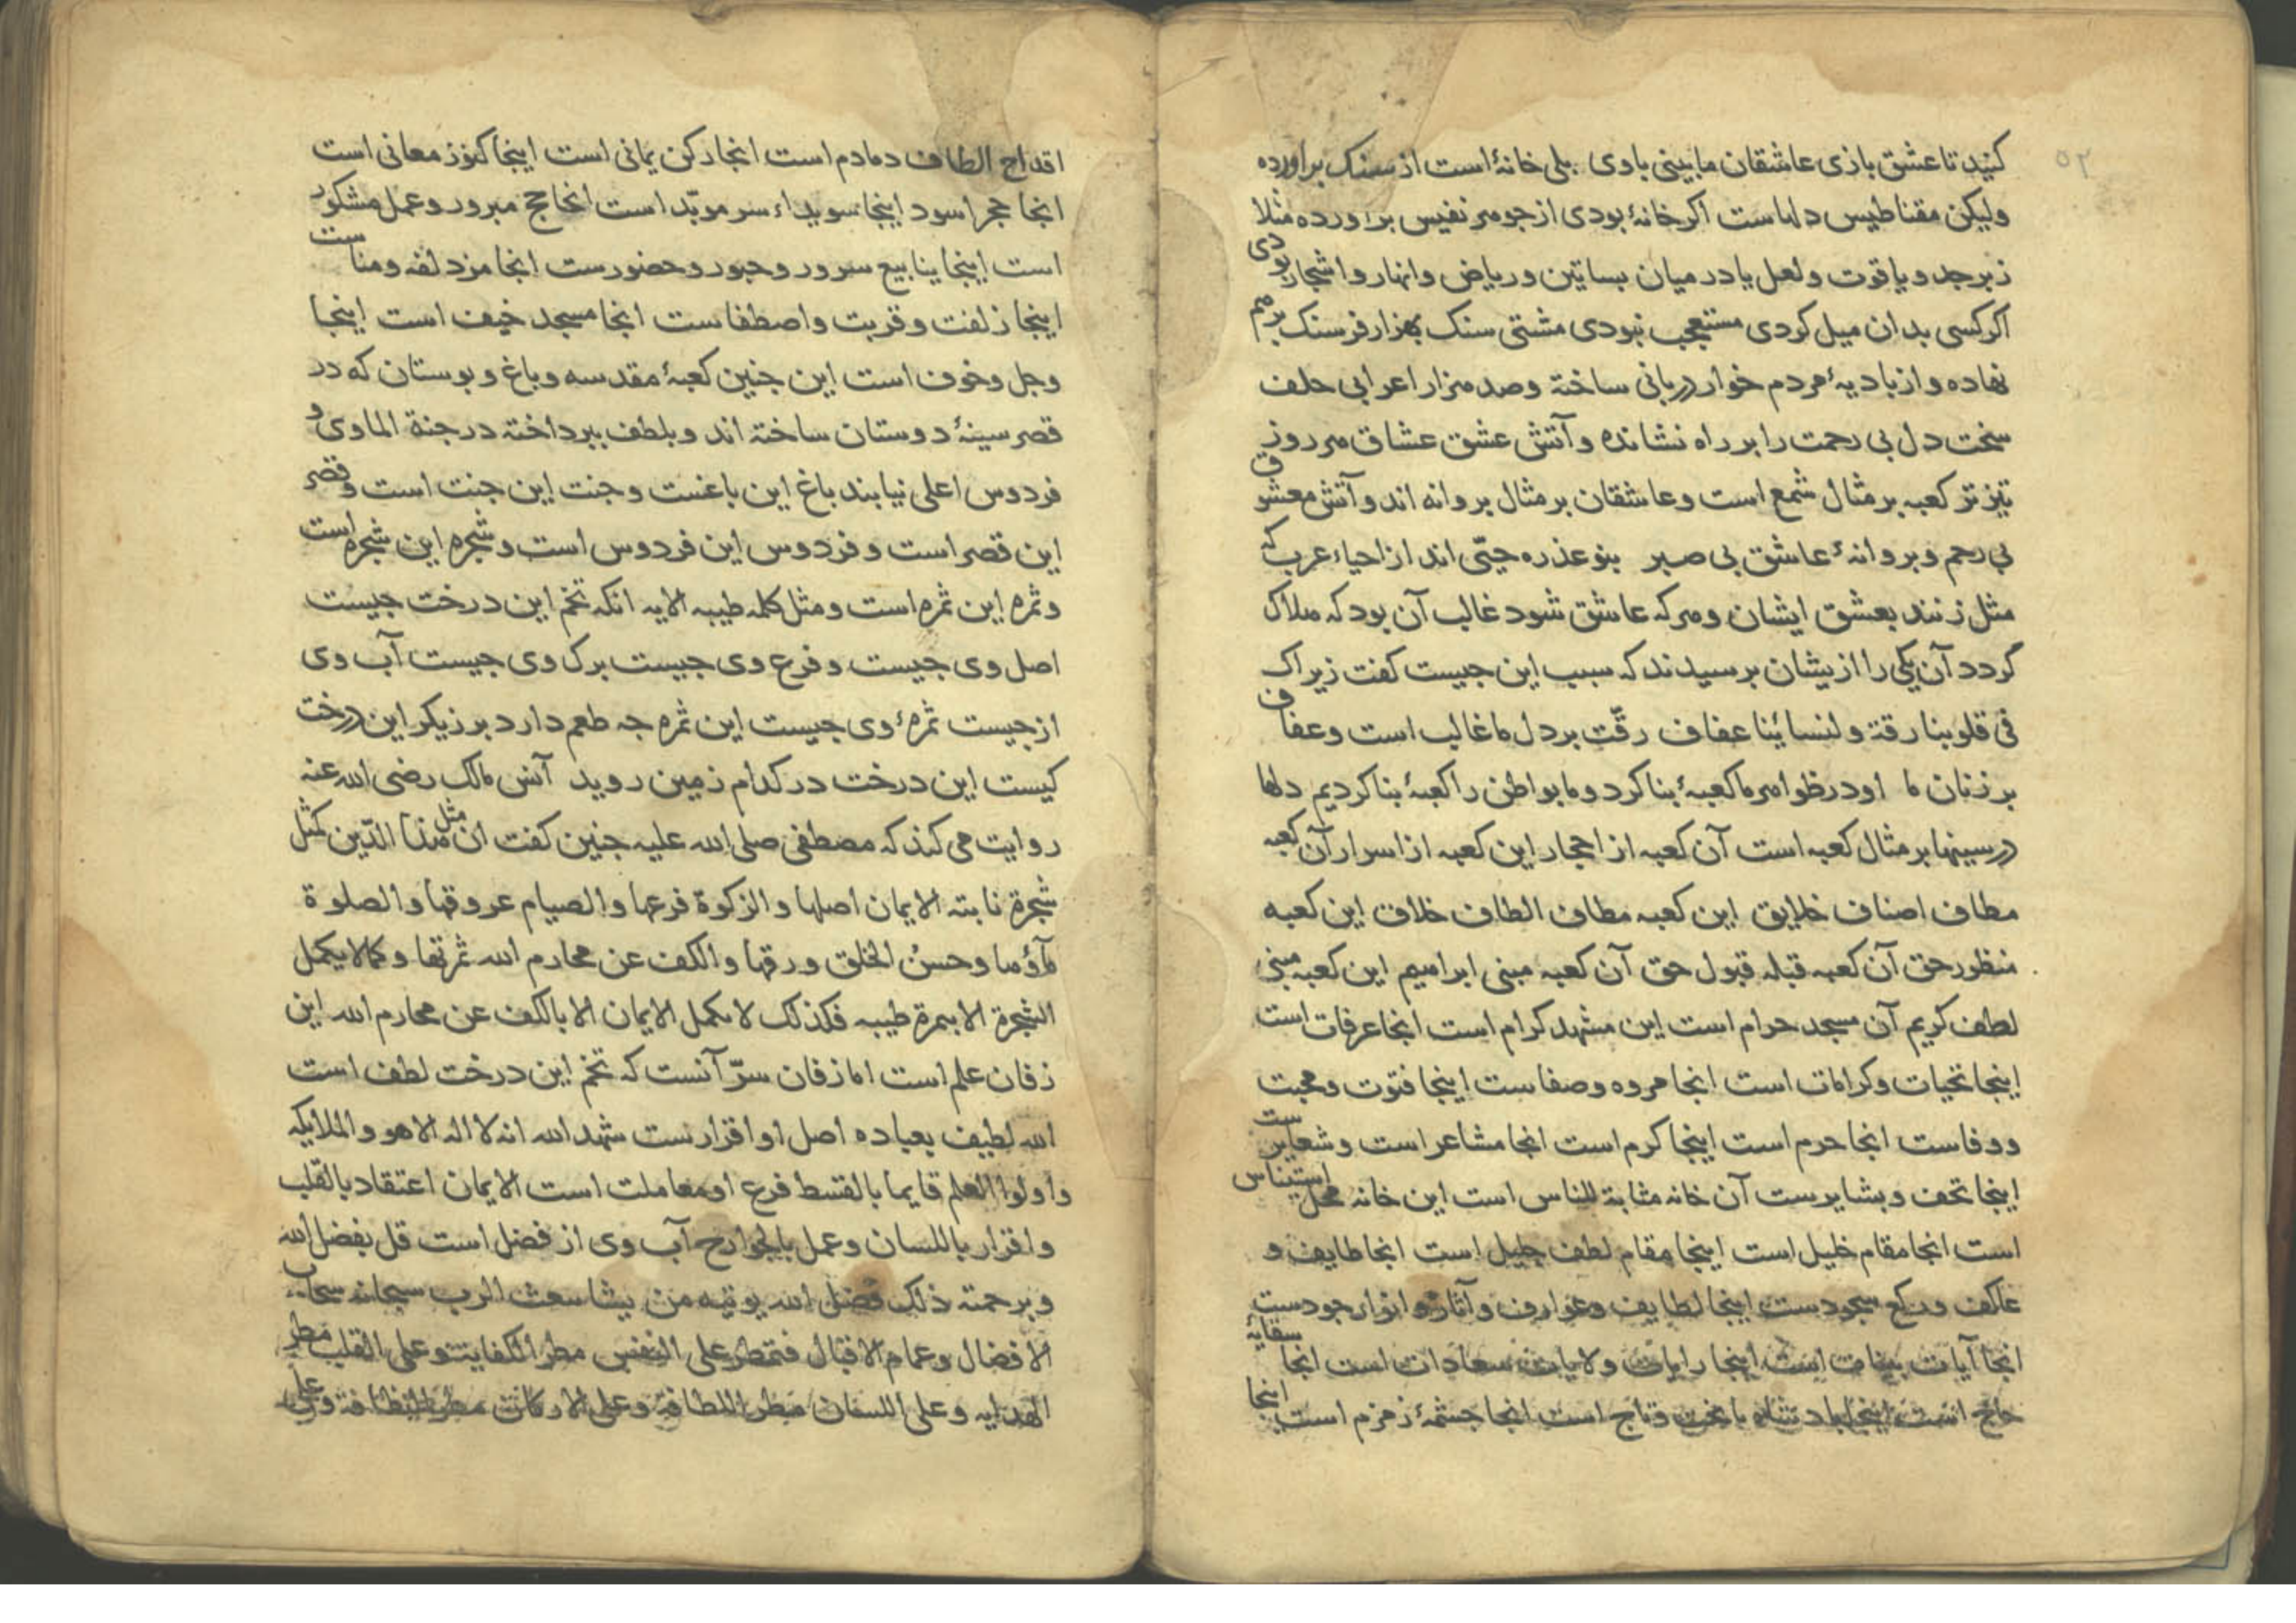 ۵۲
کنید تا عشق بازی عاشقان ما بینی باوی بلی خانۀ است از سنک براورده
ولیکن مقناطیس دلهاست اکر خانۀ بودی از جوهر نفیس براورده مثلا
زبرجد و یاقوت و لعل یا در میان بساتین و ریاض و انهار و اشجار بودی
اکر کسی بدان میل کردی مستعجب نبودی مشتی سنک بهزار فرسنک برهم
نهاده و از بادیۀ مردم خوار دربانی ساخته و صد هزار اعرابی حلف
سخت دل بی رحمت را بر راه نشانده و آتش عشق عشاق هر روز
تیزتر کعبه بر مثال شمع است و عاشقان بر مثال بروانه اند و آتش معشوق
بی رحم و بروانۀ عاشق بی صبر بنو عذره حیّی اند از احیاء عرب که
مثل زنند بعشق ایشان و هر که عاشق شود غالب آن بود که هلاک
کردد آن یکی را ازیشان برسیدند که سبب این جیست کفت زیراک
فی قلوبنا رقة و لنسائنا عفاف رقّت بر دل ما غالب است و عفاف
بر زنان ما او در ظواهر ما کعبۀ بنا کرد و ما بواطن را کعبۀ بنا کردیم دلها
در سینها بر مثال کعبه است آن کعبه از احجار این کعبه از اسرار آن کعبه
مطاف اصناف خلایق این کعبه مطاف الطاف خلاق این کعبه
منظور حق آن کعبه قبله قبول حق آن کعبه مبنی ابراهیم این کعبه مبنی
لطف کریم آن مسجد حرام است این مشهد کرام است انجا عرفات است
اینجا تحیات و کرامات است انجا مروه و صفاست اینجا فتوت و محبت
و وفاست انجا حرم است اینجا کرم است انجا مشاعر است و شعایرست
اینجا تحف و بشایرست آن خانه مثابة للناس است این خانه محل استیناس
است انجا مقام خلیل است اینجا مقام لطف جلیل است انجا طایف و
عاکف و رکع سجودست اینجا لطایف و عوارف و آثار و انوار جودست
انجا آیات بینات است اینجا رایات ولایات سعادات است انجا سقایة
حاج است اینجا بادشاه با تخت و تاج است انجا جشمۀ زمزم است اینجا
اقداح الطاف دمادم است انجا رکن یمانی است اینجا کنوز معانی است
انجا حجر اسود اینجا سویداء سر موبّد است انجا حج مبرور و عمل مشکور
است اینجا ینابیع سرور و حبور و حضورست انجا مزدلفه و مناست
اینجا زلفت و قربت و اصطفاست انجا مسجد خیف است اینجا
وجل و خوف است این جنین کعبۀ مقدسه و باغ و بوستان که در
قصر سینۀ دوستان ساخته اند و بلطف ببرداخته در جنة الماوی و
فردوس اعلی نیابند باغ این باغست و جنت این جنت است و قصر
این قصر است و فردوس این فردوس است و شجره این شجره است
و ثمره این ثمره است و مثل کلمه طیبه الایه انکه تخم این درخت جیست
اصل وی جیست و فرع وی جیست برک وی جیست آب وی
از جیست ثمرۀ وی جیست این ثمره جه طعم دارد برزیکر این درخت
کیست این درخت در کدام زمین روید آنس مالک رضی الله عنه
روایت می کند که مصطفی صلی الله علیه جنین کفت ان مثل هذا الدّین کمثل
شجرة نابته الایمان اصلها و الزکوة فرعها و الصیام عروقها و الصلوة
مآؤها و حسنُ الخلق ورقها و الکف عن محارم الله ثمرتها و کما لا یکمل
الشجرة الا بثمرة طیبه فکذلک لا یکمل الایمان الا بالکف عن محارم الله این
زفان علم است اما زفان سرّ آنست که تخم این درخت لطف است
الله لطیف بعباده اصل او اقرارست شهد الله انه لا اله الا هو و الملایکه
و اولوا العلم قایما بالقسط فرع او معاملت است الایمان اعتقاد بالقلب
و اقرار باللسان و عمل بالجوارح آب وی از فضل است قل بفضل الله
و برحمته ذلک فضل الله یوتیه من یشا سعث الرب سبحانه سحاب
الافضال و غمام الاقبال فتمطر علی النفس مطر الکفایت و علی القلب مطر
الهدایه و علی اللسان مطر اللطافة و علی الارکان مطر النظافة و علی